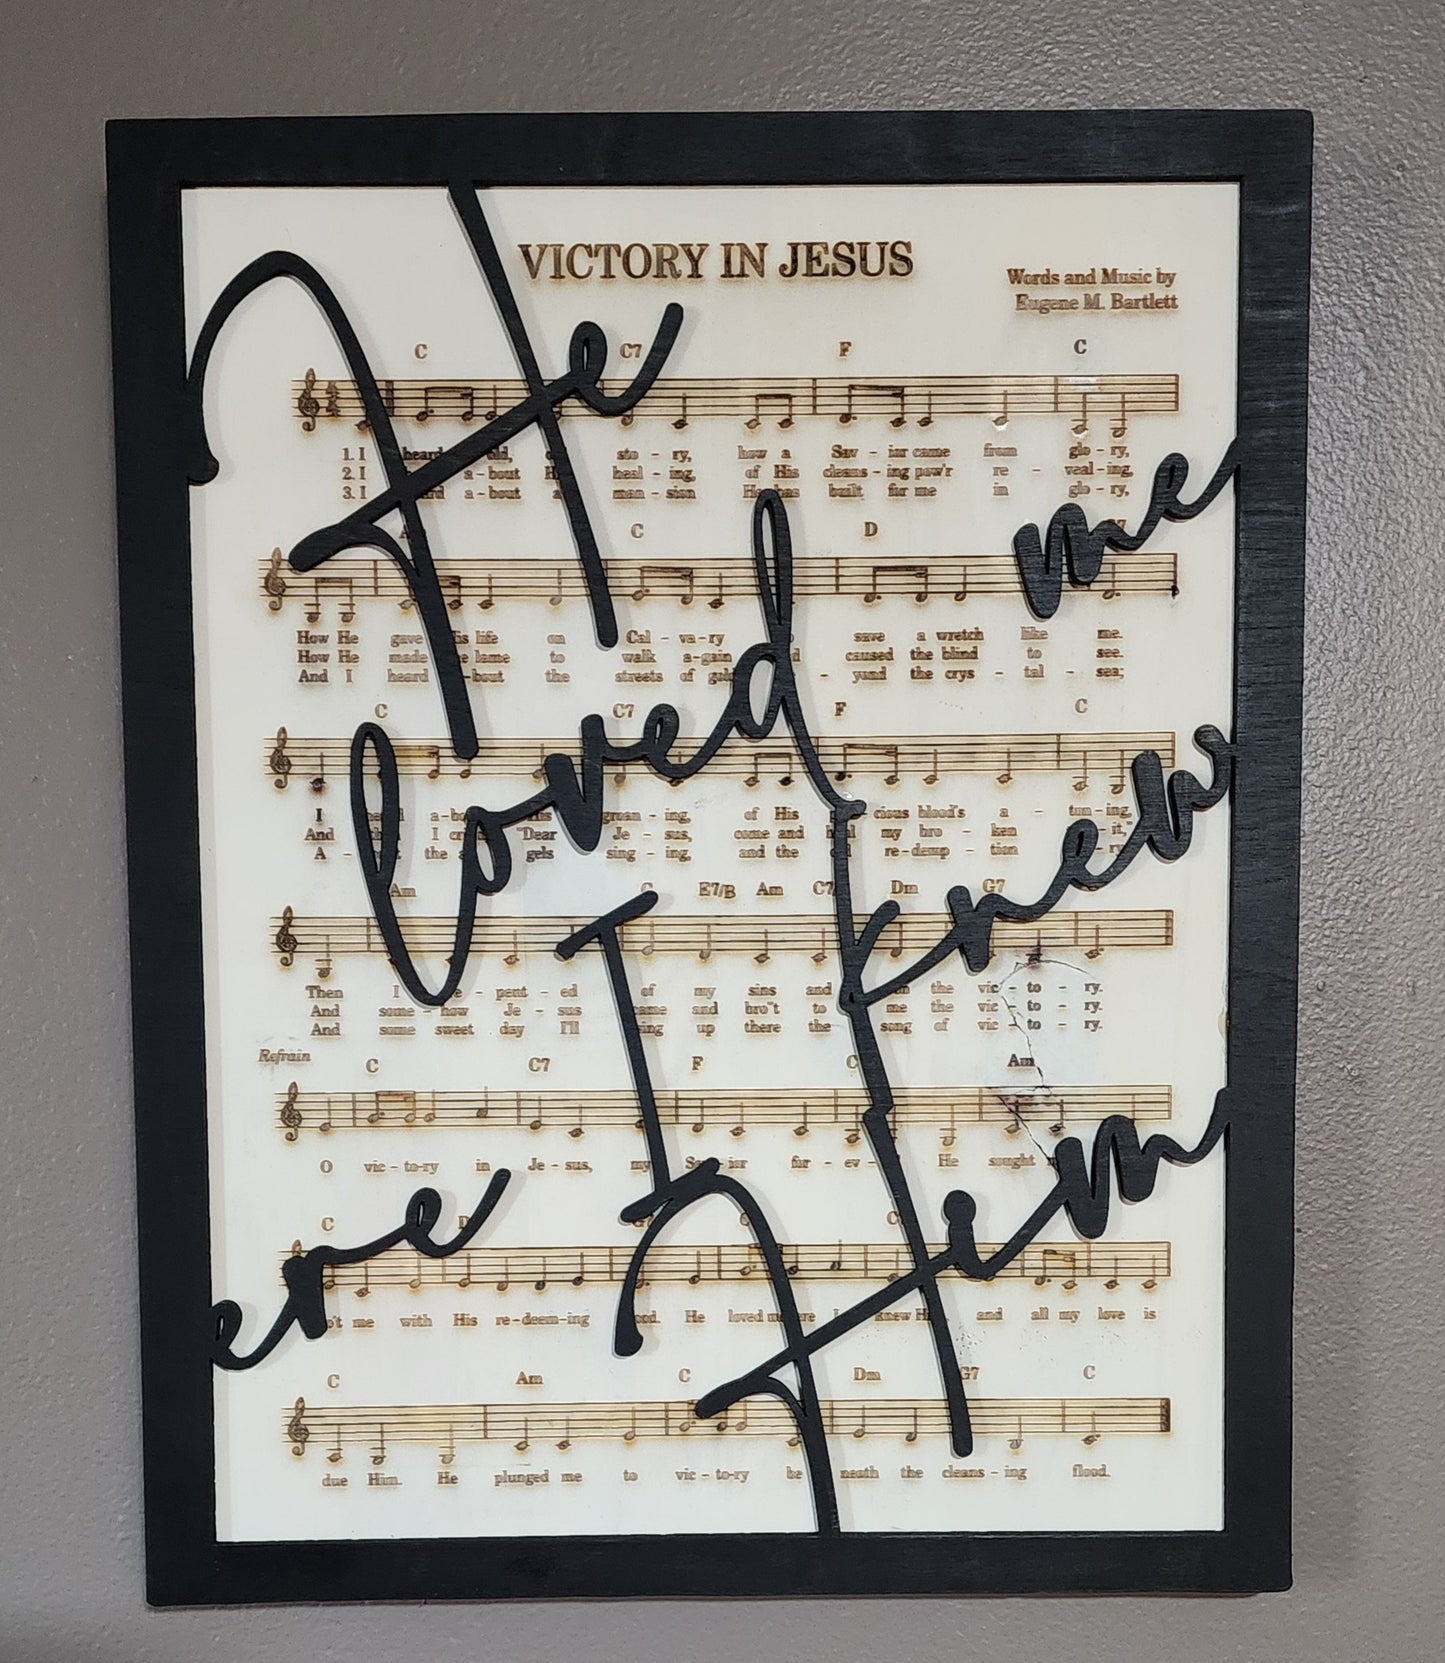 He
loved me
ere I knew
Him
VICTORY IN JESUS
Words and Music by
Eugene M. Bartlett
C C7 F C
1. I heard sto - ry, how a Sav - ior came from glo - ry,
2. I a - bout heal - ing, of His cleans - ing pow'r re - veal - ing,
3. I a - bout a man - sion He has built for me in glo - ry,
C D
How He gave His life on Cal - va - ry save a wretch like me.
How He made lame to walk a - gain caused the blind to see.
And I heard the streets of gold yond the crys - tal - sea;
C C7 F C
I groan - ing, of His cious blood's a - ton - ing,
And I "Dear Je - sus, come and my bro - ken it,"
A - the gels sing - ing, and the re - demp - tion
Am C E7/B Am C7 Dm G7
Then I pent - ed of my sins and the vic - to - ry.
And some - how Je - sus came and bro't to me the vic - to - ry.
And some sweet day I'll up there the song of vic - to - ry.
Refrain
C C7 F C Am
O vic - to - ry in Je - sus, my Sav - ior for - ev - He sought
C G7 C
me with His re - deem - ing He loved knew and all my love is
C Am C Dm G7 C
due Him. He plunged me to vic - to - ry be neath the cleans - ing flood.